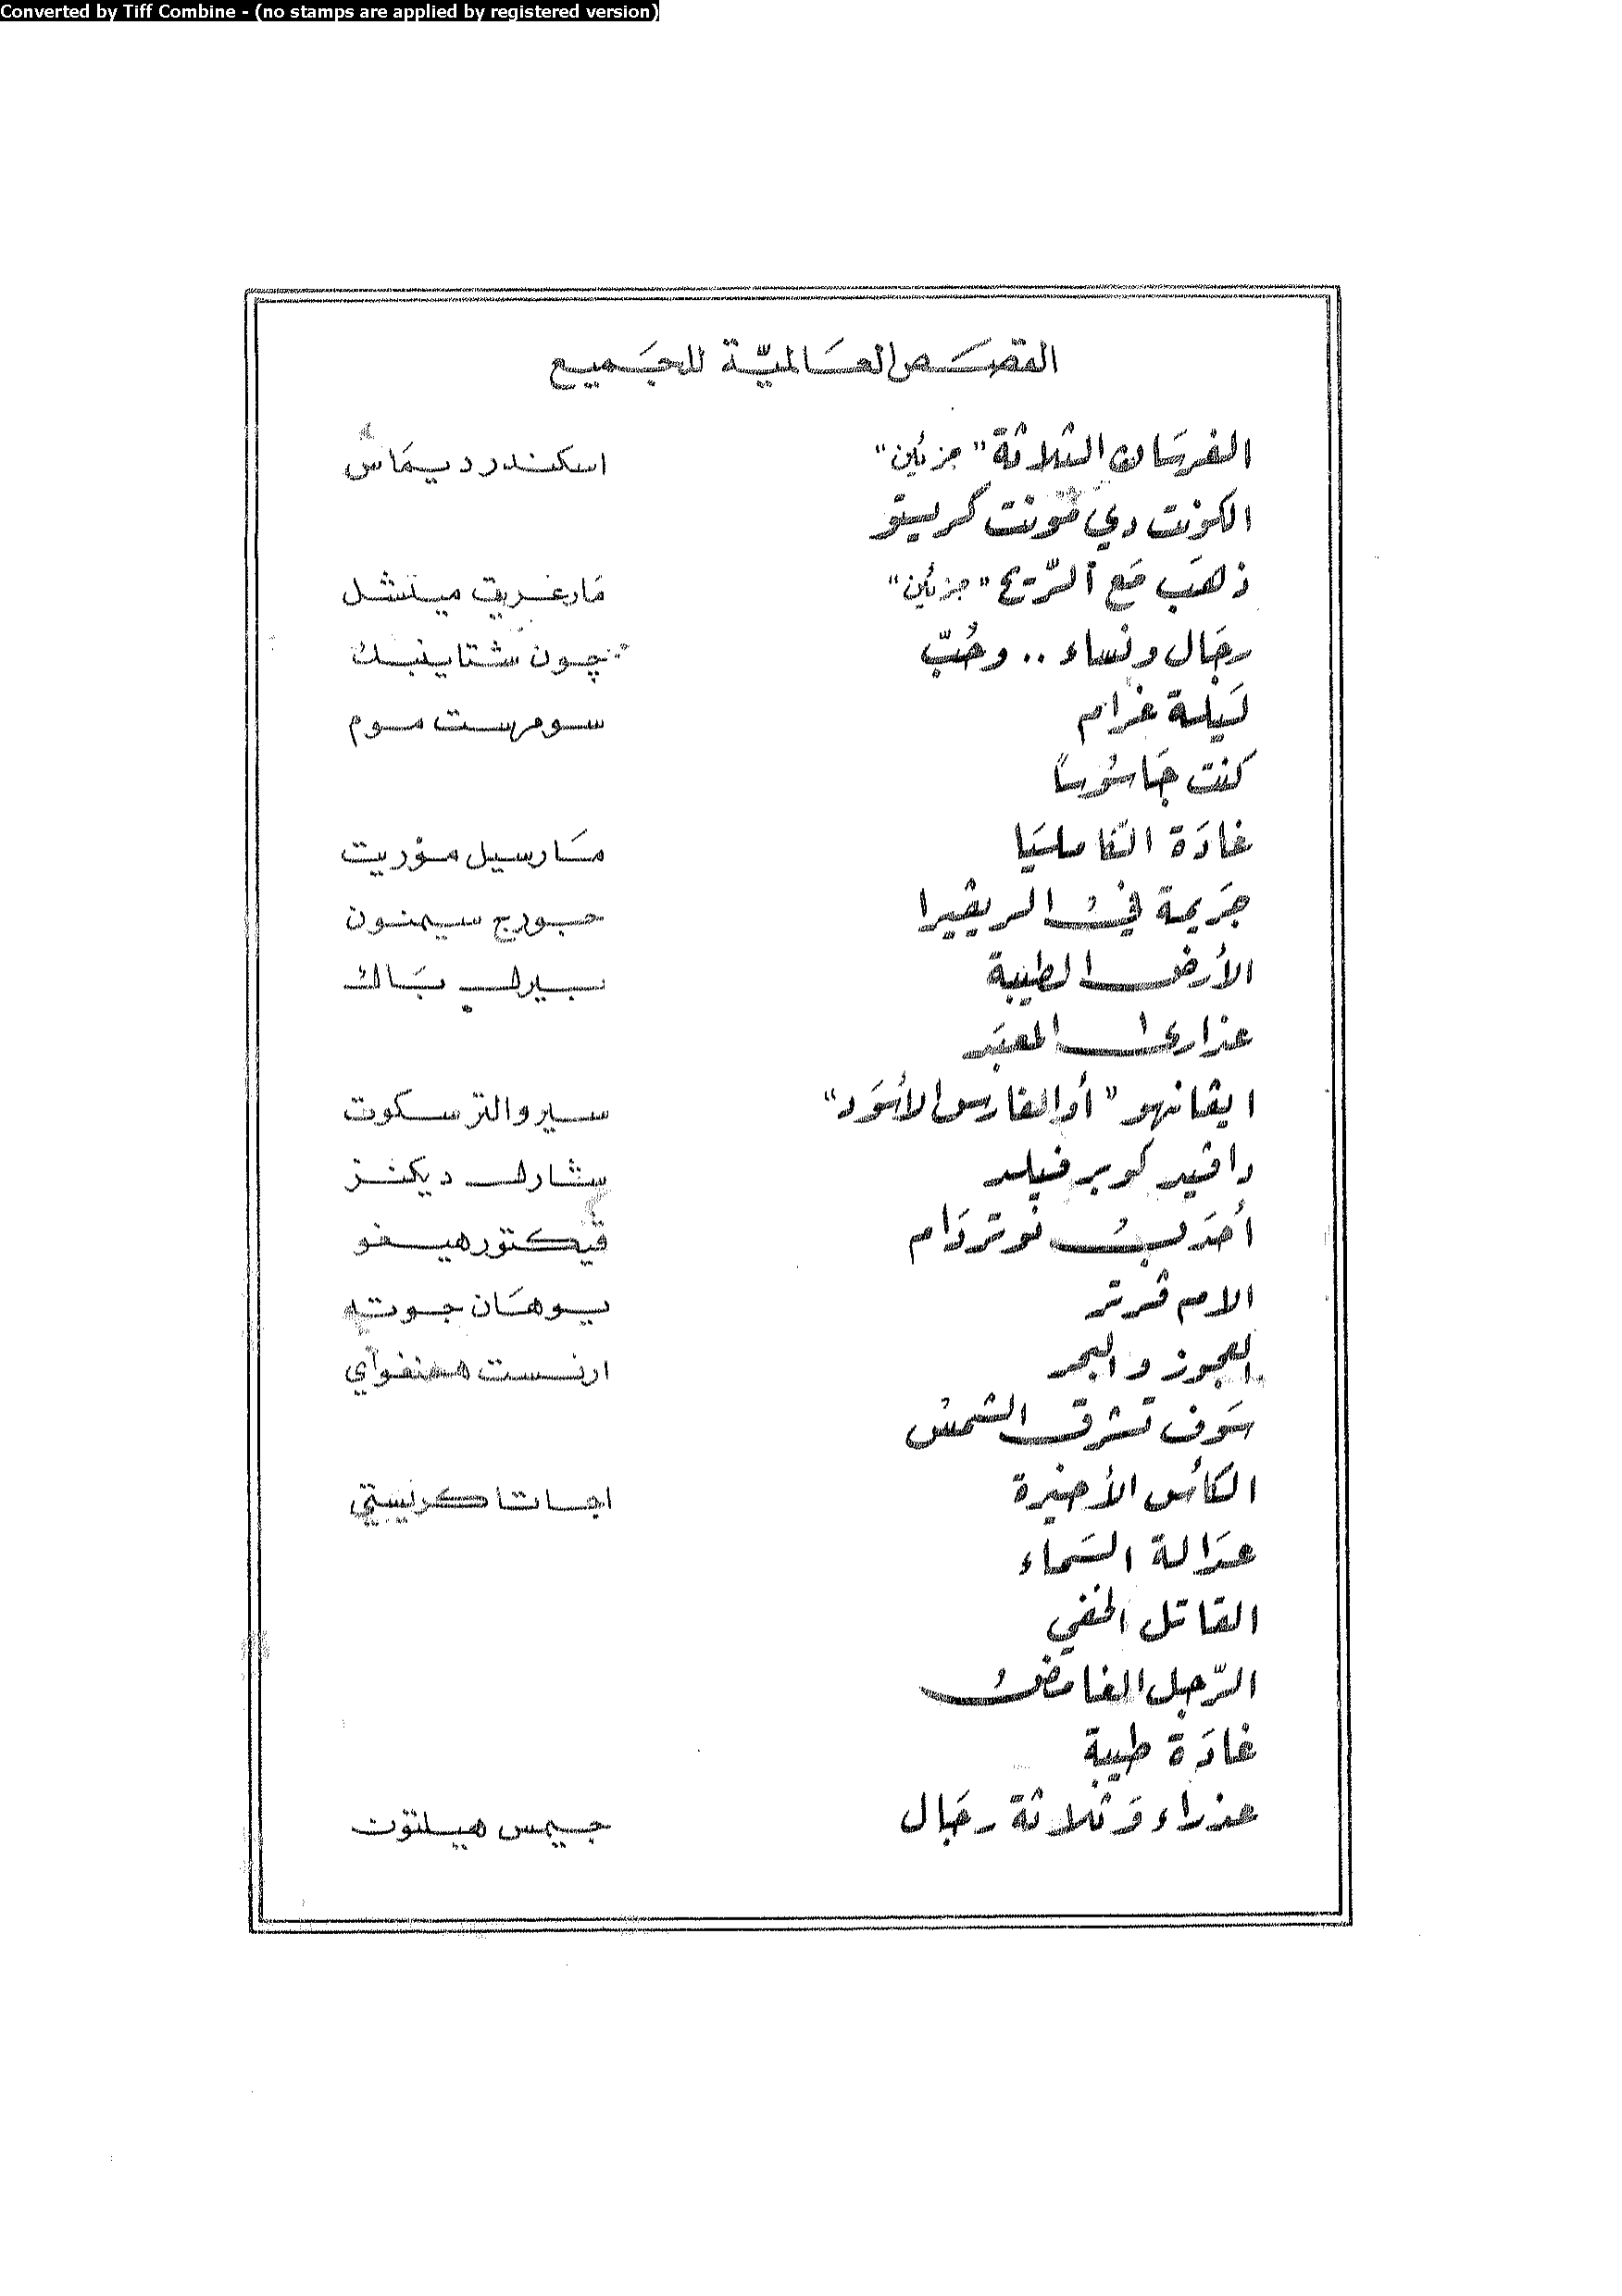 Converted by Tiff Combine - (no stamps are applied by registered version)
القصَص العَالميّة للجَميع
الفرسَان الثلاثة "جزئين" اسكندر ديمَاس
الكونت دي مونت كريستو
ذهَب مَع الرّيح "جزئين" مَارغريت ميتشل
رجَال ونساء .. وحُبّ چون شتاينبك
لَيلة غرام سومرست موم
كنت جَاسُوسًا
غادَة الكاميليَا مَارسيل موريت
جَريمة في الريڤييرا جورج سيمنون
الأرض الطيبة بيرل بَاك
عذارى المعبَد
ايڤانهو "أو الفارس الأسوَد" سير والتر سكوت
داڤيد كوبرفيلد تشارلس ديكنز
أحدَب نوتردَام ڤيكتور هيغو
الام ڤرتر يوهَان جوته
العجوز والبحر ارنست همنغواي
سَوف تشرق الشمس
الكأس الأخيرة اجاتا كريستي
عدَالة السَماء
القاتل الخفي
الرّجل الغامض
غادَة طيبة
عذراء وَثلاثة رجَال جيمس هيلتون